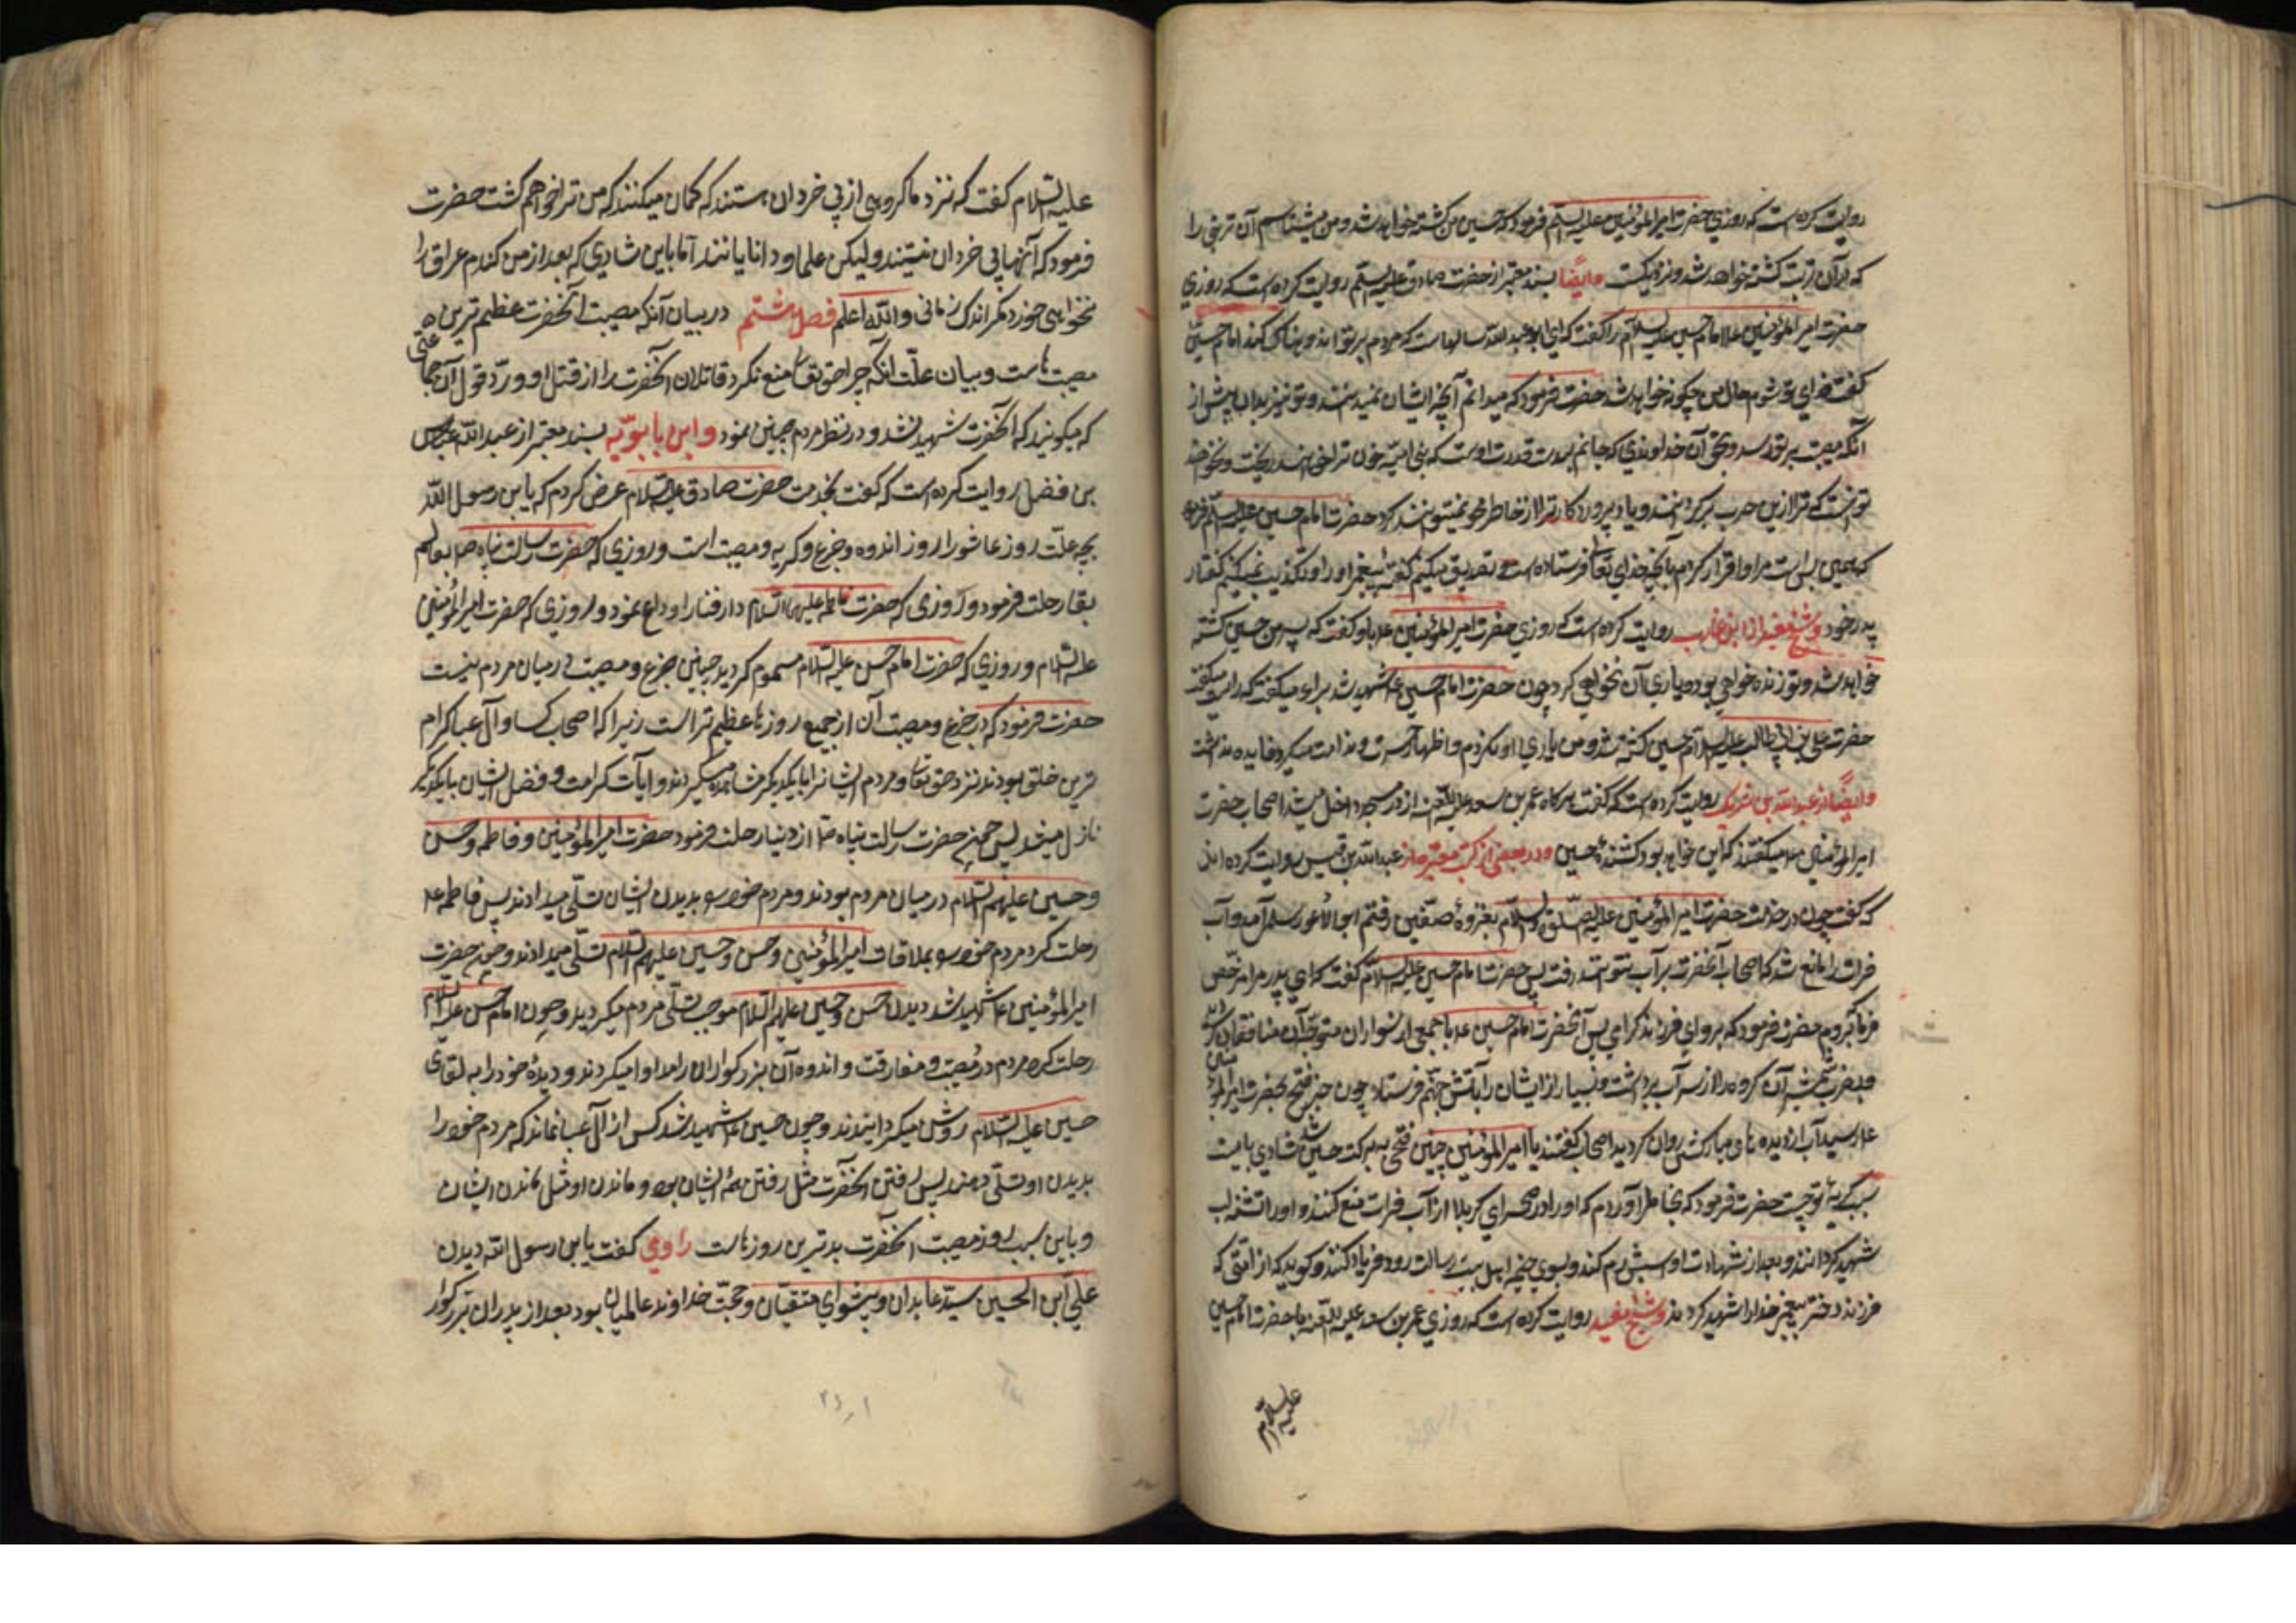 روایت کرده است که روزی حضرت امیرالمؤمنین علیه السلم فرمود که حسین من کشته خواهد شد و من میشناسم آن تربتی را
که بر آن تربت کشته خواهد شد و نزدیکست وایضًا بسند معتبر از حضرت صادق علیه السلم روایت کرده است که روزی
حضرت امیرالمؤمنین ع امام حسین علیه السلام را گفت که ای ابوعبدالله سالهاست که مردم بر تو اندوهناکی کنند امام حسین
گفت فدای تو شوم حال من چگونه خواهد شد حضرت فرمود که میدانم آنچه ایشان نمیدانند و تو نیز بدان پیش از
آنکه مصیبت بر تو رسد و بحق آن خداوندی که جانم بدست قدرت اوست که بنی امیه خون ترا خواهند ریخت و نخواهند
توانست که ترا از دین حرب برگردانند و یاد پروردکار ترا از خاطر تو محو نمیتوانند کرد حضرت امام حسین علیه السلم فرمود
که همین بس است مرا و اقرار کردم بآنچه خدای تعا فرستاده است و تصدیق میکنم گفته پیغمبر او را و تکذیب نمیکنم گفتار
پدر خود و شیخ مفید از ابن عازب روایت کرده است که روزی حضرت امیرالمؤمنین ع باو گفت که پسر من حسین کشته
خواهد شد و تو زنده خواهی بود و یاری آن نخواهی کرد چون حضرت امام حسین ع شهید شد براء میگفت که راست میگفت
حضرت علی بن ابی طالب علیه السلام حسین کشته شد و من یاری او نکردم و اظهار حسرت و ندامت میکرد و فایده نداشت
وایضًا از عبدالله بن شریک روایت کرده است که گفت هرگاه عمر بن سعد علیه اللعنه از در مسجد داخل میشد اصحاب حضرت
امیرالمؤمنین ع میگفتند که این خواهد بود کشندهٔ حسین و در بعضی از کتب معتبره از عبدالله بن قیس روایت کرده اند
که گفت چون در خدمت حضرت امیرالمؤمنین علیه الصلوة والسلام بغزوهٔ صفین رفتم ابوالاعور سلمی آمد و آب
فرات را مانع شد که اصحاب آنحضرت بر آب نتوانستند رفت پس حضرت امام حسین علیه السلام گفت که ای پدر مرا مرخص
فرما تا بروم حضرت فرمود که برو ای فرزند گرامی پس آنحضرت امام حسین ع با جمعی از سواران متوجه آن منافقان گردید
و بضرب شمشیر آن گروه را از سر آب برداشت و بسیار از ایشان را بآتش جهنم فرستاد چون خبر فتح بحضرت امیرالمؤمنین
ع رسید آب از دیده های مبارکش روان گردید اصحاب گفتند یا امیرالمؤمنین چنین فتحی به برکت حسین شد شادی بایست
سبب گریهٔ تو چیست حضرت فرمود که بخاطر آوردم که او را در صحرای کربلا از آب فرات منع کنند و او را تشنه لب
شهید گردانند و بعد از شهادت او اسبش رم کند و بسوی خیمه اهل بیت رسالت رود و فریاد کند و گوید که از امتی که
فرزند دختر پیغمبر خدا را شهید کردند و شیخ مفید روایت کرده است که روزی عمر بن سعد علیه اللعنه با حضرت امام حسین
علیه السلام
علیه السّلام گفت که نزد ما گروهی از بی خردان هستند که گمان میکنند که من ترا خواهم کشت حضرت
فرمود که آنها بی خردان نیستند ولیکن علما و دانایانند اما باین شادی که بعد از من گندم عراق را
نخواهی خورد مگر اندک زمانی والله اعلم فصل ششم در بیان آنکه مصیبت آنحضرت عظیم ترین
مصیبت هاست و بیان علّت آنکه چرا حق تعا منع نکرد قاتلان آنحضرت را از قتل او و ردّ قول آن جماعتی
که میگویند که آنحضرت شهید نشد و در نظر مردم چنین نمود و ابن بابویه بسند معتبر از عبدالله عباس
بن فضل روایت کرده است که گفت بخدمت حضرت صادق علیه السلام عرض کردم که یابن رسول الله
بچه علّت روز عاشورا روز اندوه و جزع و گریه و مصیبت است و روزی که حضرت رسالت پناه ص بعالم
بقا رحلت فرمود و روزی که حضرت فاطمه علیها السلام دار فنا را وداع نمود و روزی که حضرت امیرالمؤمنین
علیه السّلام و روزی که حضرت امام حسن علیه السلام مسموم گردید چنین جزع و مصیبت در میان مردم نیست
حضرت فرمود که جزع و مصیبت آن از جمیع روزها عظیم تر است زیرا که اصحاب کسا و آل عبا گرام
ترین خلق بودند نزد حق تعا و مردم ایشانرا بایکدیگر مشاهده میکردند و آیات کرامت و فضل ایشان بایکدیگر
نازل میشد پس چون حضرت رسالت پناه ص از دنیا رحلت فرمود حضرت امیرالمؤمنین و فاطمه و حسن
و حسین علیهم السلام در میان مردم بودند و مردم خود را بدیدن ایشان تسلّی میدادند پس فاطمه ع
رحلت کرد مردم خود را بملاقات امیرالمؤمنین و حسن و حسین علیهم السلام تسلّی میدادند و چون حضرت
امیرالمؤمنین ع شهید شد دیدن حسن و حسین علیهم السلام موجب تسلّی مردم میگردید و چون امام حسن علیه السلام
رحلت کرد مردم در مصیبت و مفارقت و اندوه آن بزرگواران را مداوا میکردند و دیدهٔ خود را به لقای
حسین علیه السّلام روشن میگردانیدند و چون حسین ع شهید شد کس از آل عبا نماند که مردم خود را
بدیدن او تسلّی دهند پس رفتن آنحضرت مثل رفتن همهٔ ایشان بود و ماندن او مثل ماندن ایشان
و باین سبب روز مصیبت آنحضرت بدترین روزهاست راوی گفت یابن رسول الله دیدن
علی ابن الحسین سیّد عابدان و پیشوای متّقیان و حجّت خداوند عالمیان بود بعد از پدران بزرگوار